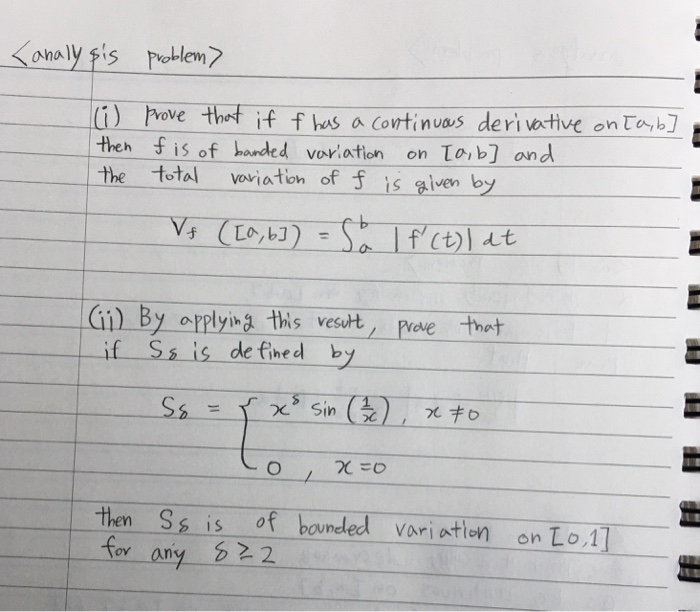 <analysis problem>
(i) prove that if f has a continuous derivative on [a,b]
then f is of banded variation on [a,b] and
the total variation of f is given by
V_f ([a,b]) = ∫_a^b |f'(t)| dt
(ii) By applying this result, prove that
if S_δ is defined by
S_δ = { x^δ sin (1/x), x ≠ 0
0, x = 0
then S_δ is of bounded variation on [0,1]
for any δ ≥ 2